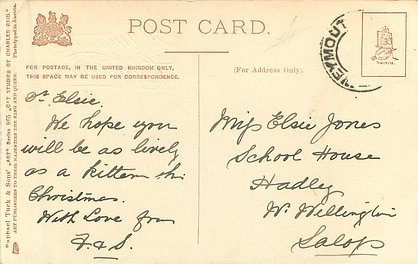 POST CARD.
FOR POSTAGE, IN THE UNITED KINGDOM ONLY,
THIS SPACE MAY BE USED FOR CORRESPONDENCE.
(For Address Only).
WEYMOUT
Raphael Tuck & Sons' "ART" Series 865 "CAT STUDIES BY CHARLES REID."
ART PUBLISHERS TO THEIR MAJESTIES THE KING AND QUEEN.
Dr Elsie.
We hope you
will be as lively
as a kitten this
Christmas.
With Love from
F. & S.
Miss Elsie Jones
School House
Hadley
Nr. Wellington
Salop